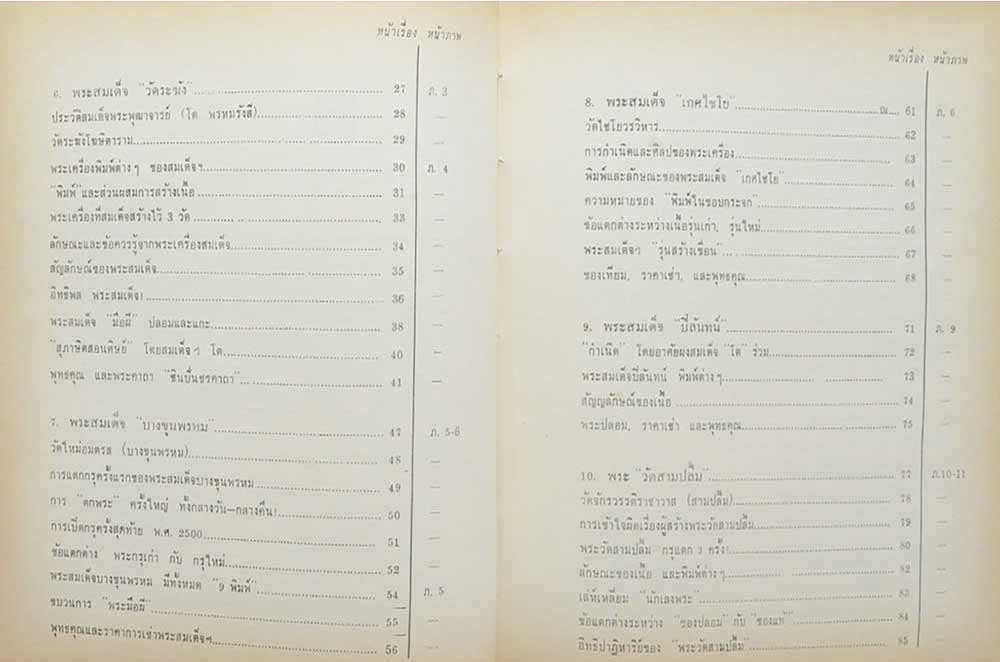 หน้าเรื่อง หน้าภาพ
6. พระสมเด็จ "วัดระฆัง" ........ 27 ภ. 3
ประวัติสมเด็จพระพุฒาจารย์ (โต พรหมรังสี) ........ 28 —
วัดระฆังโฆษิตาราม ........ 29 —
พระเครื่องพิมพ์ต่างๆ ของสมเด็จฯ ........ 30 ภ. 4
"พิมพ์" และส่วนผสมการสร้างเนื้อ ........ 31 —
พระเครื่องที่สมเด็จสร้างไว้ 3 วัด ........ 33 —
ลักษณะและข้อควรรู้จากพระเครื่องสมเด็จ ........ 34 —
สัญลักษณ์ของพระสมเด็จ ........ 35 —
อิทธิพล พระสมเด็จ! ........ 36 —
พระสมเด็จ "มือผี" ปลอมและแกะ ........ 38 —
"สุภาษิตสอนศิษย์" โดยสมเด็จฯ โต ........ 40 —
พุทธคุณ และพระคาถา "ชินบัญชรคาถา" ........ 41 —
7. พระสมเด็จ "บางขุนพรหม" ........ 47 ภ. 5-6
วัดใหม่อมตรส (บางขุนพรหม) ........ 48 —
การแตกกรุครั้งแรกของพระสมเด็จบางขุนพรหม ........ 49 —
การ "ตกพระ" ครั้งใหญ่ ทั้งกลางวัน—กลางคืน! ........ 50 —
การเปิดกรุครั้งสุดท้าย พ.ศ. 2500 ........ 51 —
ข้อแตกต่าง พระกรุเก่า กับ กรุใหม่ ........ 52 —
พระสมเด็จบางขุนพรหม มีทั้งหมด "9 พิมพ์" ........ 54 ภ. 5
ขบวนการ "พระมือผี" ........ 55 —
พุทธคุณและราคาการเช่าพระสมเด็จฯ ........ 56 —
หน้าเรื่อง หน้าภาพ
8. พระสมเด็จ "เกศไชโย" ........ 61 ภ. 6
วัดไชโยวรวิหาร ........ 62 —
การกำเนิดและศิลปของพระเครื่อง ........ 63 —
พิมพ์และลักษณะของพระสมเด็จ "เกศไชโย" ........ 64 —
ความหมายของ "พิมพ์ในขอบกระจก" ........ 65 —
ข้อแตกต่างระหว่างเนื้อรุ่นเก่า, รุ่นใหม่ ........ 66 —
พระสมเด็จฯ "รุ่นสร้างเขื่อน" ........ 67 —
ของเทียม, ราคาเช่า, และพุทธคุณ ........ 68 —
9. พระสมเด็จ "ปิลันทน์" ........ 71 ภ. 9
"กำเนิด" โดยอาศัยผงสมเด็จ "โต" ร่วม ........ 72 —
พระสมเด็จปิลันทน์ พิมพ์ต่างๆ ........ 73 —
สัญญลักษณ์ของเนื้อ ........ 74 —
พระปลอม, ราคาเช่า และพุทธคุณ ........ 75 —
10. พระ "วัดสามปลื้ม" ........ 77 ภ.10-11
วัดจักรวรรดิราชาวาส (สามปลื้ม) ........ 78 —
การเข้าใจผิดเรื่องผู้สร้างพระวัดสามปลื้ม ........ 79 —
พระวัดสามปลื้ม กรุแตก 3 ครั้ง! ........ 80 —
ลักษณะของเนื้อ และพิมพ์ต่างๆ ........ 82 —
เล่ห์เหลี่ยม "นักเลงพระ" ........ 83 —
ข้อแตกต่างระหว่าง "ของปลอม" กับ "ของแท้" ........ 84 —
อิทธิปาฏิหาริย์ของ "พระวัดสามปลื้ม" ........ 85 —